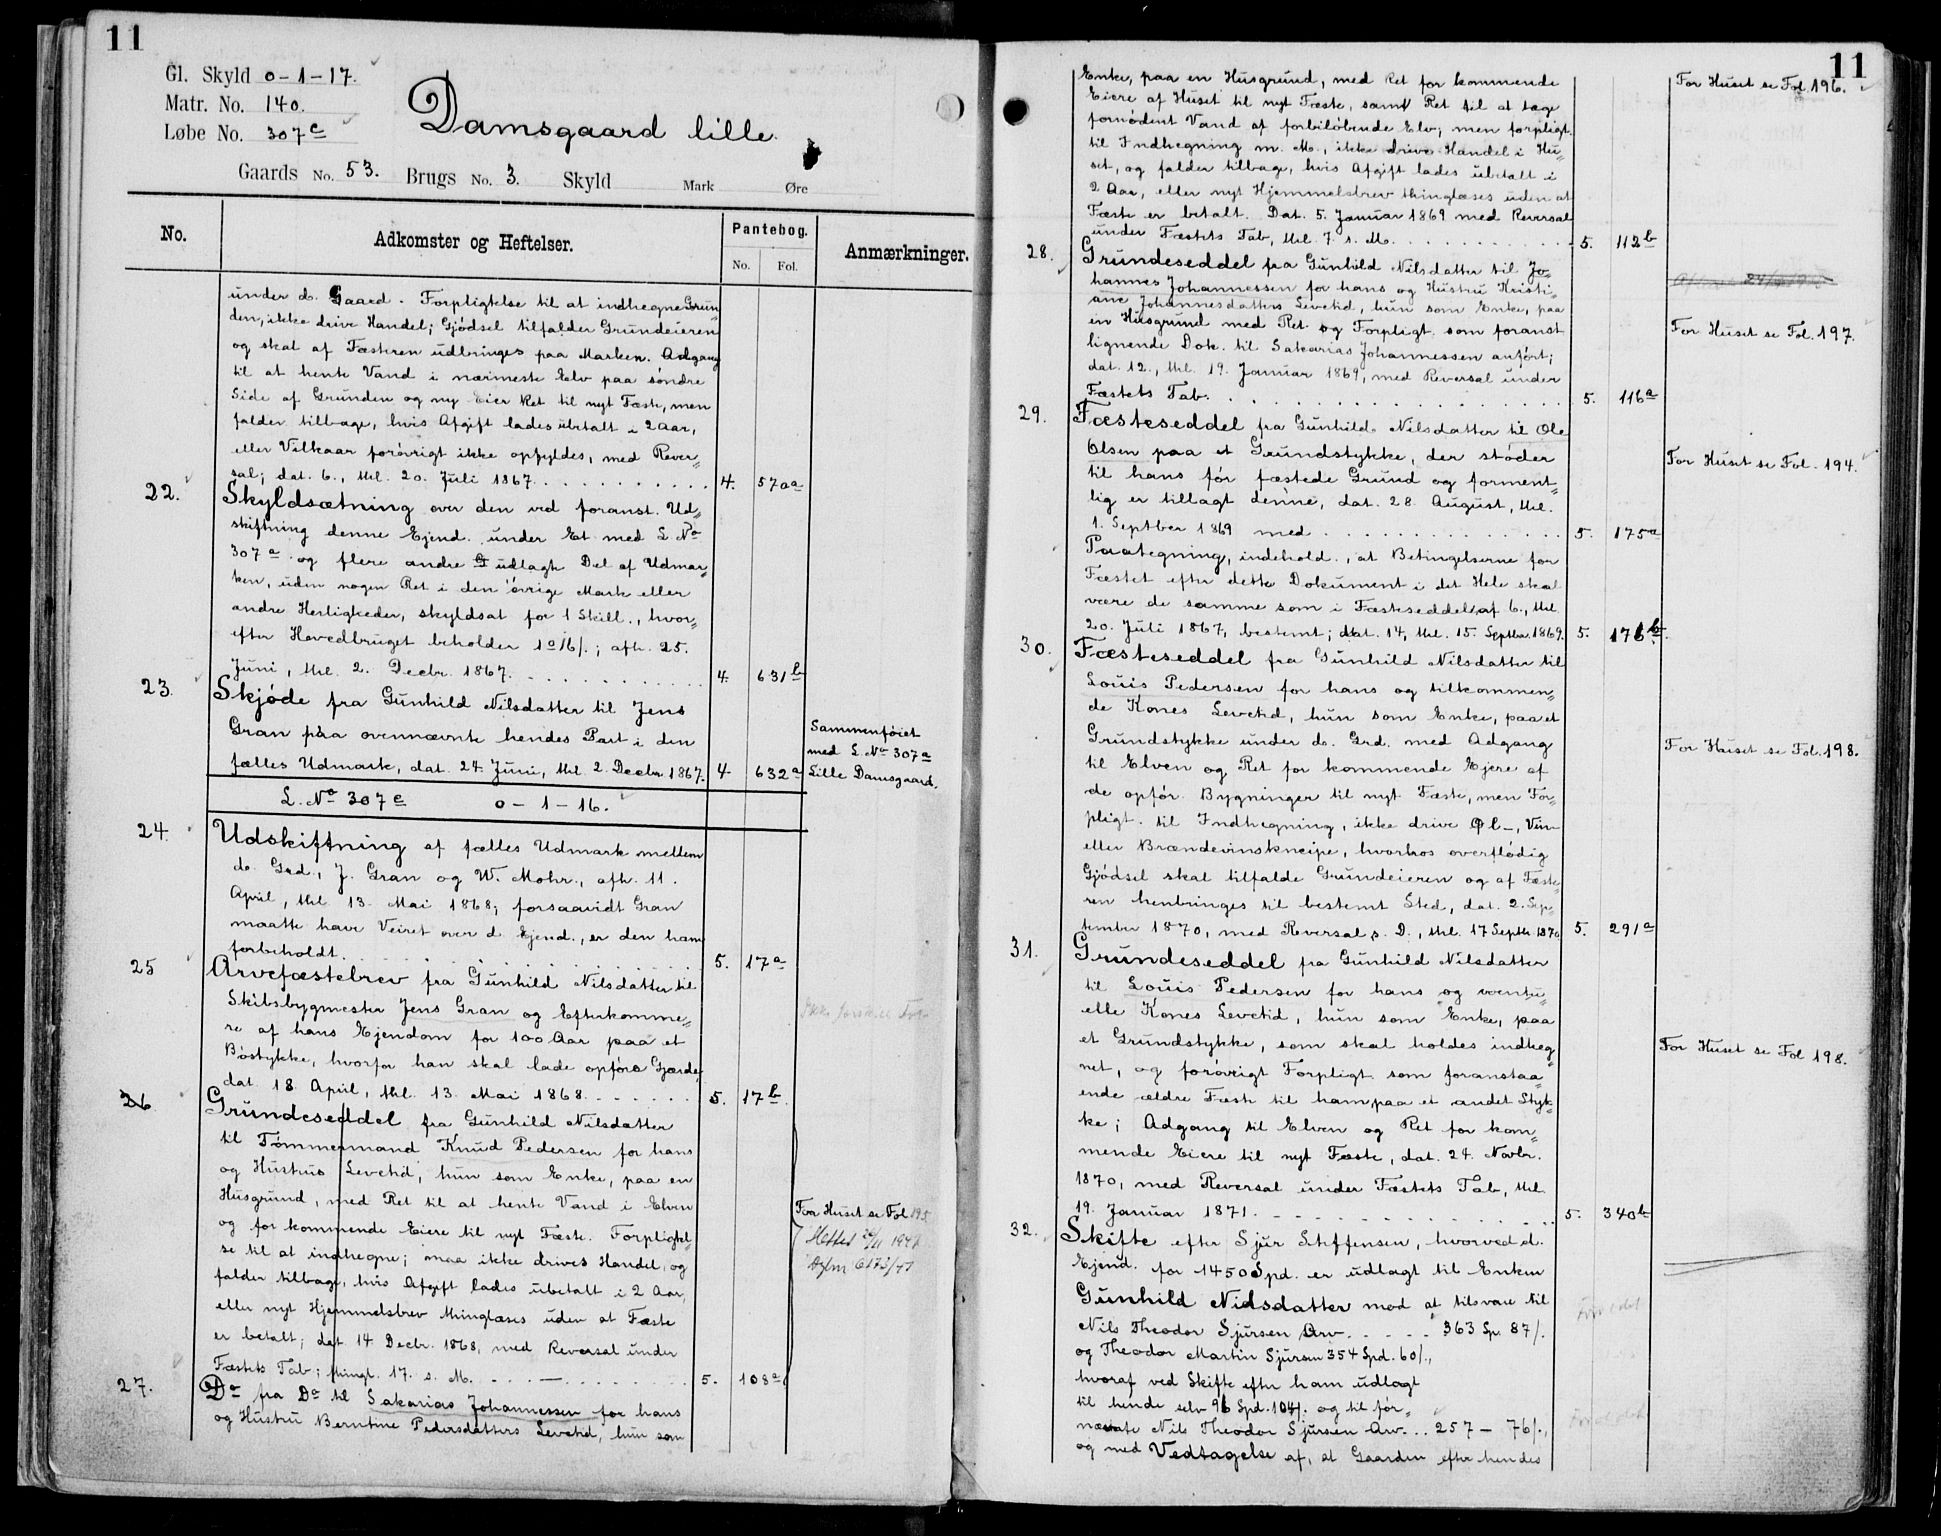 11
Gl. Skyld 0-1-17.
Matr. No. 140.
Løbe No. 307e
Damsgaard lille.
Gaards No. 53. Brugs No. 3. Skyld Mark Øre
No. Adkomster og Heftelser. Pantebog. Anmærkninger.
No. Fol.
under do. Gaard. Forpligtelse til at indhegne Grun„
den, ikke drive Handel; Gjødsel tilfalder Grundeieren
og skal af Fæsteren udbringes paa Marken. Adgang
til at hente Vand i nærmeste Elv paa søndre
Side af Grunden og ny Eier Ret til nyt Fæste, men
falder tilbage, hvis Afgift lades ubetalt i 2 Aar,
eller Vilkaar forøvrigt ikke opfyldes, med Rever„
sal; dat. 6., thl. 20. Juli 1867. 4. 570a
22. Skyldsætning over den ved foranst. Ud„
skiftning denne Ejend. under Et med L No
307a og flere andre udlagte Del af Udmar„
ken, uden nogen Ret i den øvrige Mark eller
andre Herligheder, skyldsat for 1 Skill., hvor„
efter Hovedbruget beholder 1o16/.; afh. 25.
Juni, thl. 2. Decbr. 1867. 4. 631b
23. Skjøde fra Gunhild Nilsdatter til Jens
Gran paa ovennævnte hendes Part i den
fælles Udmark, dat. 24. Juni, thl. 2. Decbr. 1867. 4. 632a
Sammenføiet
med L No 307a
Lille Damsgaard.
L. No 307e 0-1-16.
24. Udskiftning af fælles Udmark mellem
do. Grd., J. Gran og W. Mohr., afh. 11.
April, thl. 13. Mai 1868; forsaavidt Gran
maatte have Veiret over d. Ejend., er den ham
forbeholdt. 5. 17a
25 Arvefæstebrev fra Gunhild Nilsdatter til
Skibsbygmester Jens Gran og Efterkomme„
re af hans Ejendom for 100 Aar paa et
Bøstykke, hvorfor han skal lade opføre Gjærde,
dat. 18. April, thl. 13. Mai 1868. 5. 17b.
26. Grundeseddel fra Gunhild Nilsdatter
til Tømmermand Knud Pedersen for hans
og Hustrus Levetid, hun som Enke, paa en
Husgrund, med Ret til at hente Vand i Elven
og for kommende Eiere til nyt Fæste. Forpligtel„
se til at indhegne; maa ikke drives Handel, og
falder tilbage, hvis Afgift lades ubetalt i 2 Aar,
eller nyt Hjemmelsbrev thinglæses uden at Fæste
er betalt; dat. 14. Decbr. 1868, med Reversal under
Fæstets Tab; thingl. 17. s. M. 5. 108a
For Huset se Fol 195
Slettet 1947
27. Do fra Do til Sakarias Johannessen for hans
og Hustru Berntine Pedersdatters Levetid, hun som
11
Enke, paa en Husgrund, med Ret for kommende
Eiere af Huset til nyt Fæste, samt Ret til at tage
fornødent Vand af forbiløbende Elv; men forpligt.
til Indhegning m. M., ikke drive Handel i Hu„
set, og falder tilbage, hvis Afgift lades ubetalt i
2 Aar, eller nyt Hjemmelsbrev thinglæses uden at
Fæste er betalt. Dat. 5. Januar 1869 med Reversal
under Fæstets Tab, thl. 7. s. M. 5. 112b
For Huset se Fol. 196.
28. Grundeseddel fra Gunhild Nilsdatter til Jo„
hannes Johannessen for hans og Hustru Kristi„
ane Johannesdatters Levetid, hun som Enke, paa
en Husgrund med Ret og Forpligt. som foranst.
lignende Dok. til Sakarias Johannessen anført;
dat. 12., thl. 19. Januar 1869, med Reversal under
Fæstets Tab. 5. 116a
For Huset se Fol. 197.
29. Fæsteseddel fra Gunhild Nilsdatter til Ole
Olsen paa et Grundstykke, der støder
til hans før fæstede Grund og forment„
lig er tillagt denne, dat. 28. August, thl.
1. Septber 1869 med 5. 175a
For Huset se Fol. 194.
Paategning, indehold., at Betingelserne for
Fæstet efter dette Dokument i det Hele skal
være de samme som i Fæsteseddel af 6., thl.
20. Juli 1867, bestemt; dat. 14, thl. 15. Septbr. 1869. 5. 176b.
30. Fæsteseddel fra Gunhild Nilsdatter til
Louis Pedersen for hans og tilkommen„
de Kones Levetid, hun som Enke, paa et
Grundstykke under do. Grd. med Adgang
til Elven og Ret for kommende Ejere af
de opfør. Bygninger til nyt Fæste, men For„
pligt. til Indhegning, ikke drive Øl-, Vin-
eller Brændevinskneipe, hvorhos overflødig
Gjødsel skal tilfalde Grundeieren og af Fæste„
ren henbringes til bestemt Sted, dat. 2. Sep„
tember 1870, med Reversal s. D., thl. 17 Septbr 1870 5. 291a
For Huset se Fol. 198.
31. Grundeseddel fra Gunhild Nilsdatter
til Louis Pedersen for hans og eventu„
elle Kones Levetid, hun som Enke, paa
et Grundstykke, som skal holdes indheg„
net, og forøvrigt Forpligt. som foranstaa„
ende ældre Fæste til ham paa et andet Styk„
ke; Adgang til Elven og Ret for kom„
mende Eiere til nyt Fæste, dat. 24. Novbr.
1870, med Reversal under Fæstets Tab, thl.
19. Januar 1871. 5. 340b
For Huset se Fol 198.
32. Skifte efter Sjur Steffensen, hvorved d.
Ejend. for 1450 Spd. er udlagt til Enken
Gunhild Nidsdatter mod at tilsvare til
Nils Theodor Sjursen Arv 363 Sp. 87/.
og Theodor Martin Sjursen 354 Spd. 60/.,
hvoraf ved Skifte efter ham udlagt
til hende selv 96 Spd. 104/. og til før„
nævnte Nils Theodor Sjursen Arv. 257 - 76/.,
og med Vedtagelse af, at Gaarden efter hendes